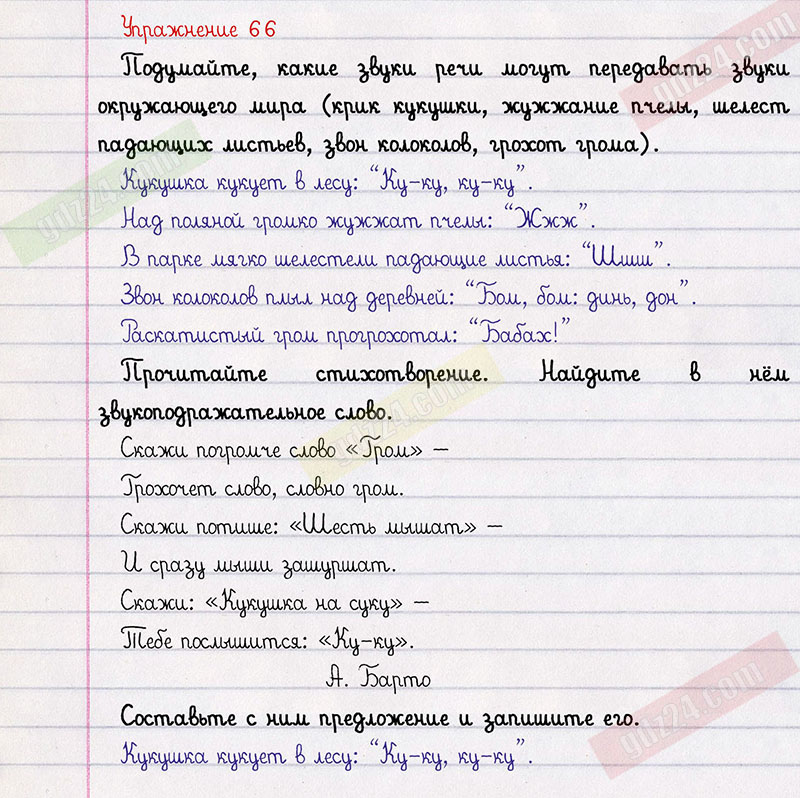 Упражнение 66
Подумайте, какие звуки речи могут передавать звуки
окружающего мира (крик кукушки, жужжание пчелы, шелест
падающих листьев, звон колоколов, грохот грома).
Кукушка кукует в лесу: “Ку-ку, ку-ку”.
Над поляной громко жужжат пчелы: “Жжж”.
В парке мягко шелестели падающие листья: “Шшш”.
Звон колоколов плыл над деревней: “Бом, бом: динь, дон”.
Раскатистый гром прогрохотал: “Бабах!”
Прочитайте стихотворение. Найдите в нём
звукоподражательное слово.
Скажи погромче слово «Гром» –
Грохочет слово, словно гром.
Скажи потише: «Шесть мышат» –
И сразу мыши зашуршат.
Скажи: «Кукушка на суку» –
Тебе послышится: «Ку-ку».
А. Барто
Составьте с ним предложение и запишите его.
Кукушка кукует в лесу: “Ку-ку, ку-ку”.
gdz24.com
gdz24.com
gdz24.com
gdz24.com